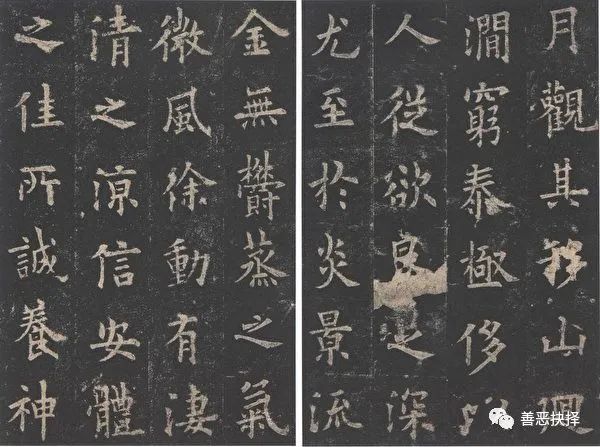 月觀其移山迴
澗窮泰極侈以
人從欲良足深
尤至於炎景流
金無欝蒸之氣
微風徐動有淒
清之涼信安體
之佳所誠養神
善恶抉择